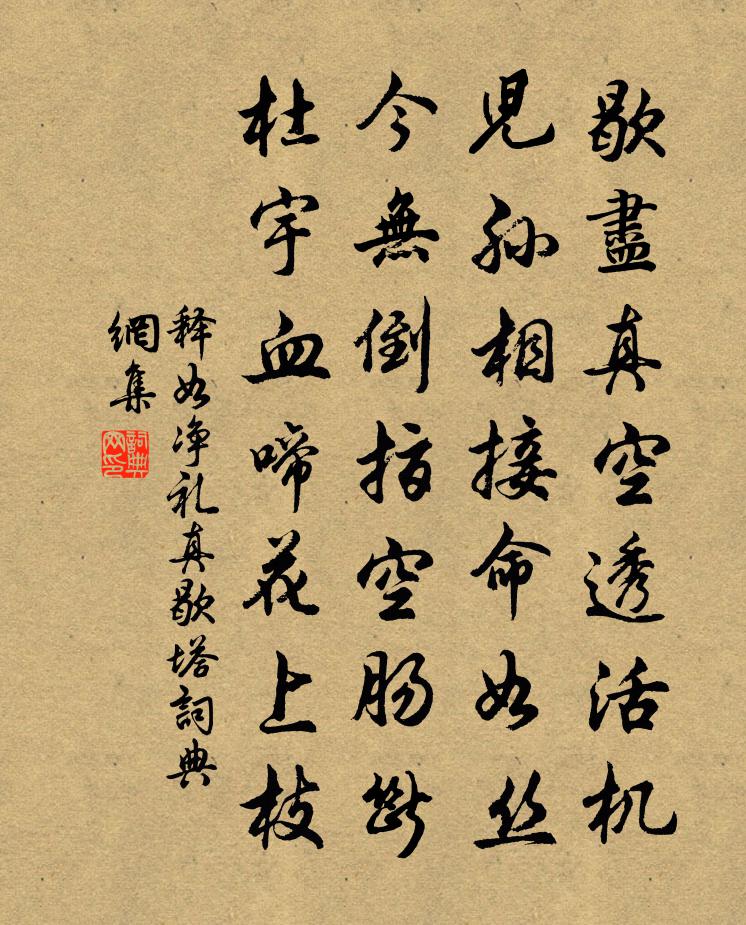 歇盡真空透活机
児孙相接命如丝
今無倒指空肠断
杜宇血啼花上枝
释如净礼真歇塔詞典
網集
詞典網印